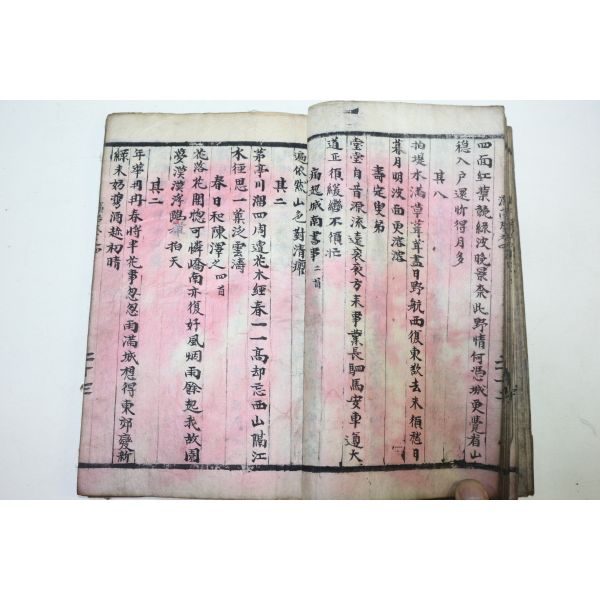 四面紅葉競綠波晚景奈此野情何憑城更覺看山
穩入戶還忻得月多
其八
拍堤水滿草茸茸盡日野航西復東數去未須愁日
暮月明波面更溶溶
壽定叟弟
堂堂自昔源流遠袞袞方來事業長駟馬安車道大
道正須緩轡不須忙
病起城南書事二首
遍依
山色對清癯
其二
茅亭川湖四周遭花木經春一一高却忘西山隔江
水徑思一葉泛雲濤
春日和陳擇之四首
花落花開惱可憐嶠南亦復好風烟雨餘愁我故園
夢漠漠浮鷗拍天
其二
年華冉冉春將半花事忽忽雨滿城想得東郊變新
綠未妨攜酒趁初晴
二十三